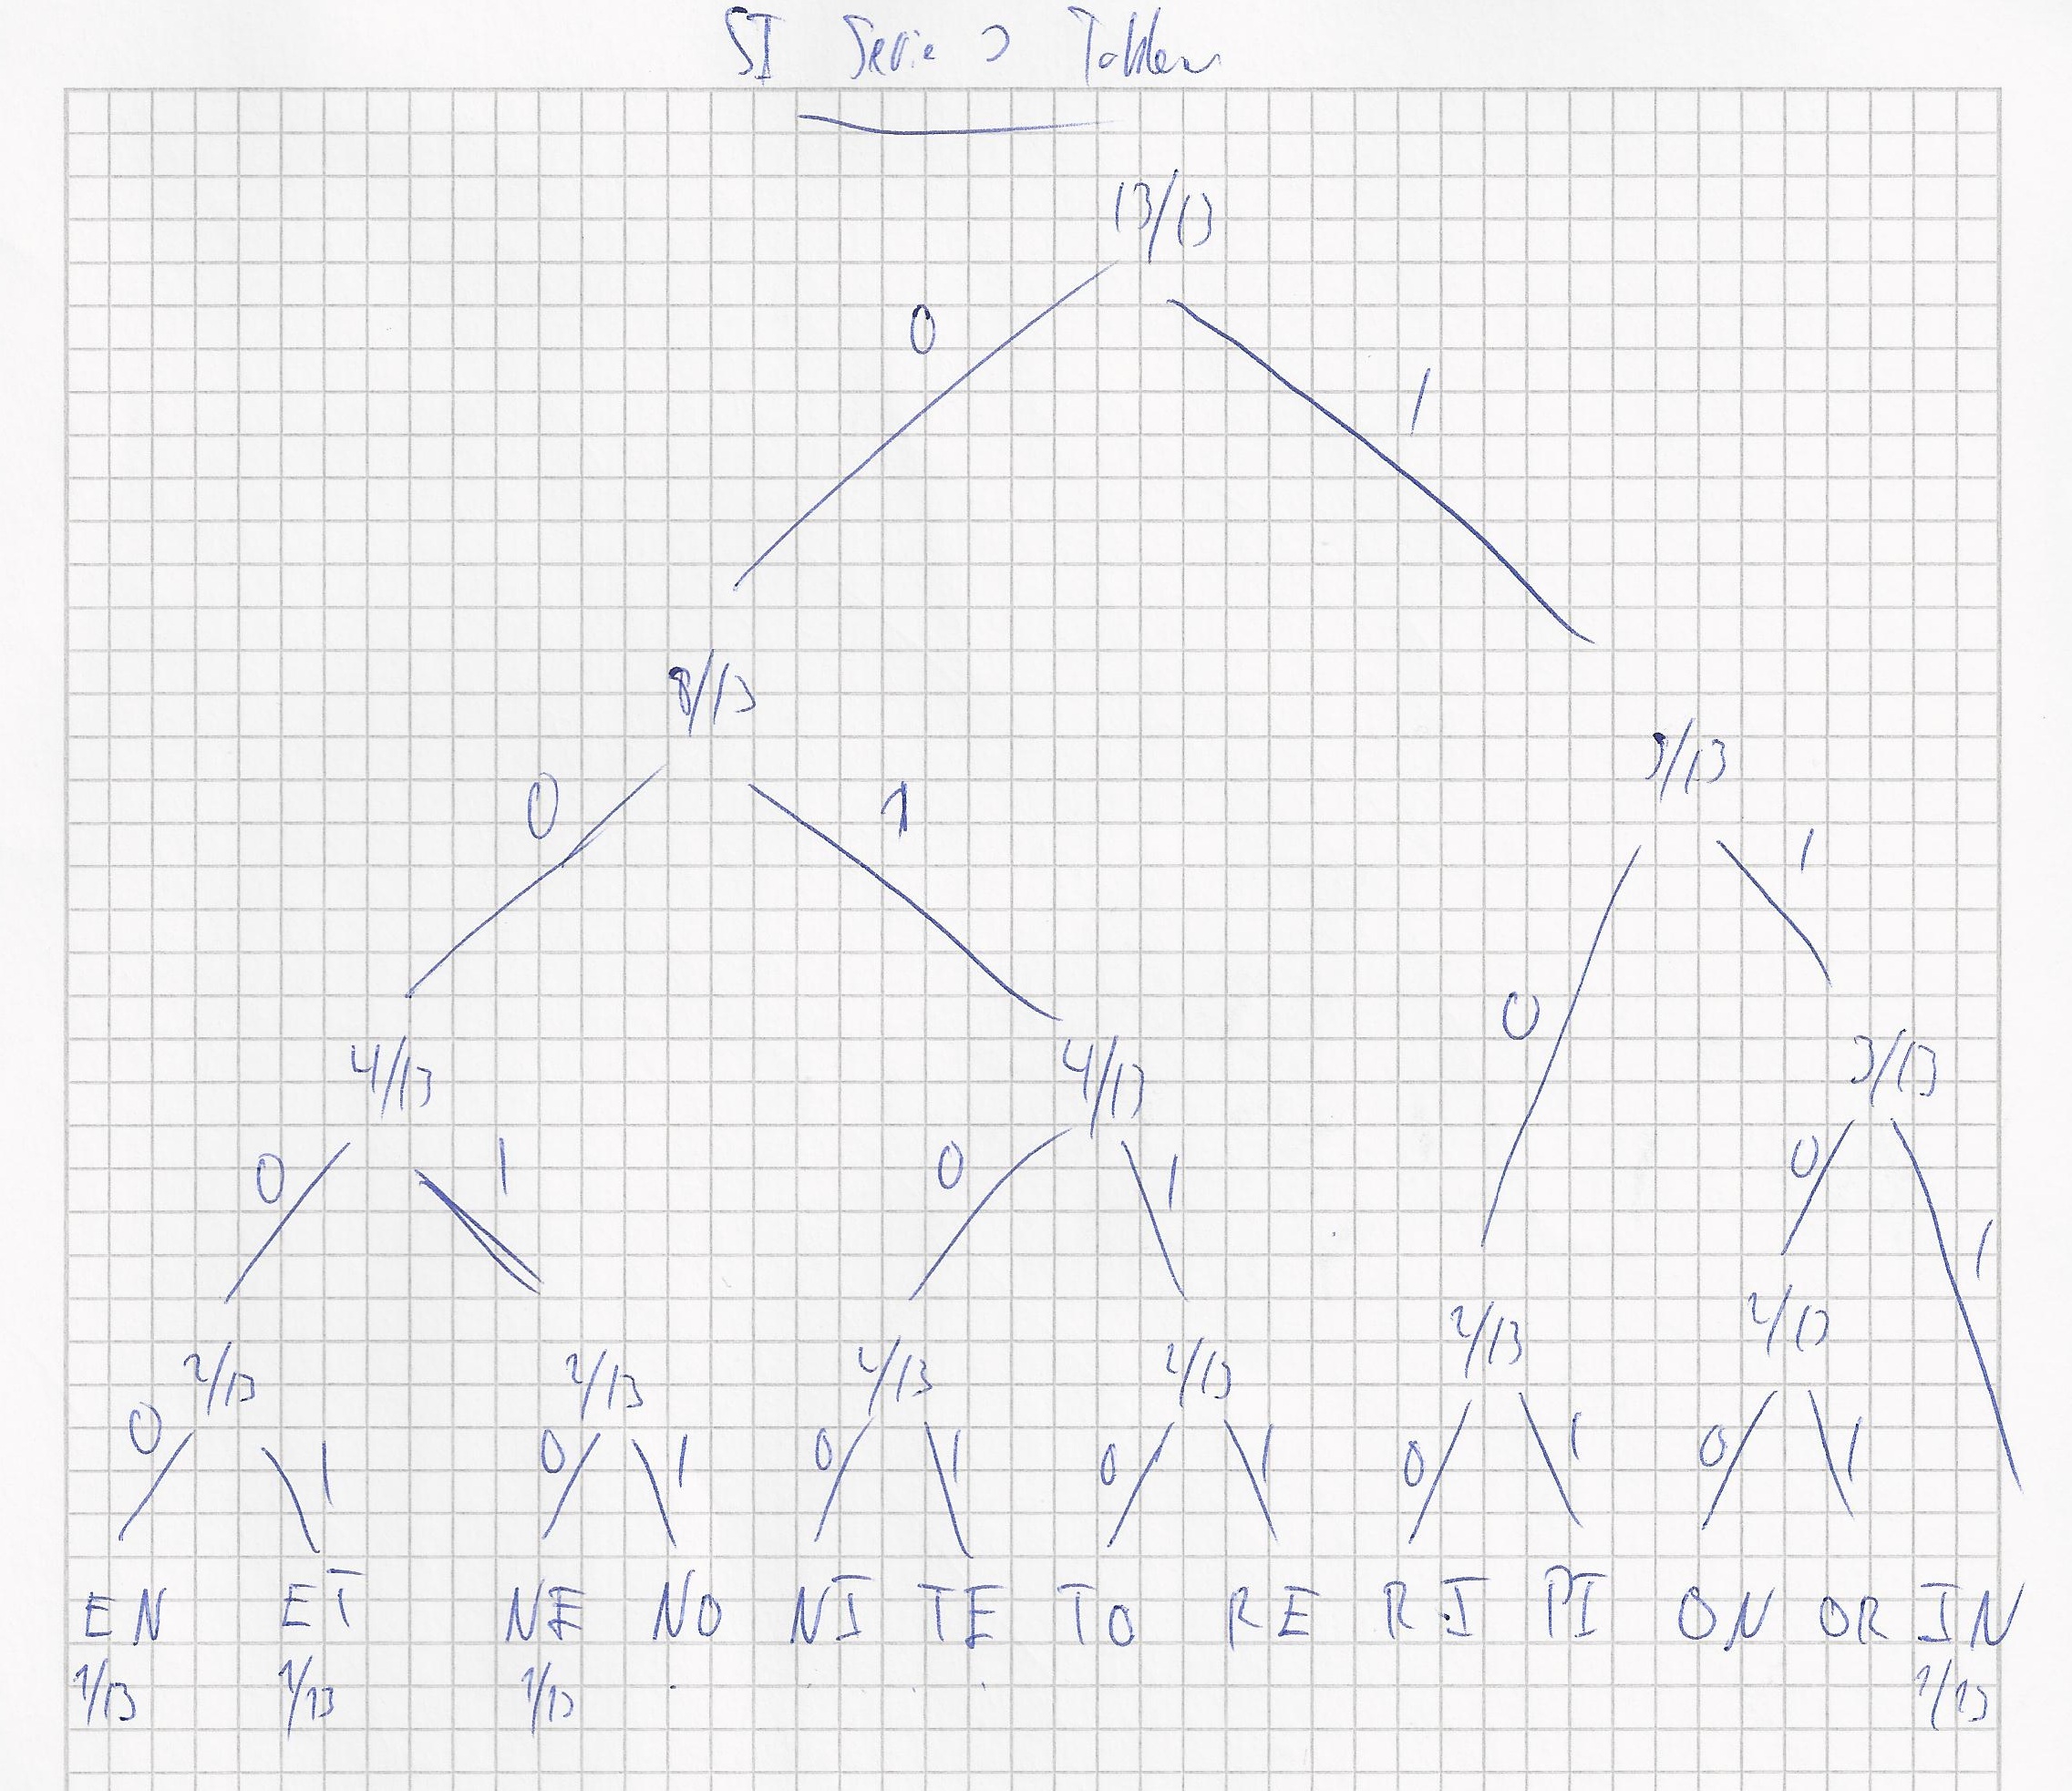 SI Serie
13/13
0 1
8/13
5/13
0 1
0 1
4/13 4/13 3/13
0 1 0 1 0 1
2/13 2/13 2/13 2/13 2/13 2/13
0 1 0 1 0 1 0 1 0 1 0 1
EN ET NE NO NI TE TO RE RI PI ON OR IN
1/13 1/13 1/13 1/13